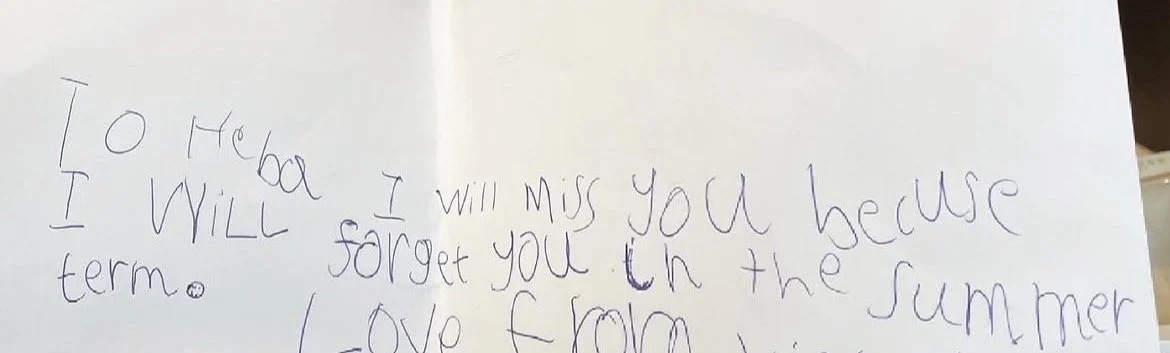 To Heba
I will miss you becuse
I WiLL forget you in the summer
term.
Love from